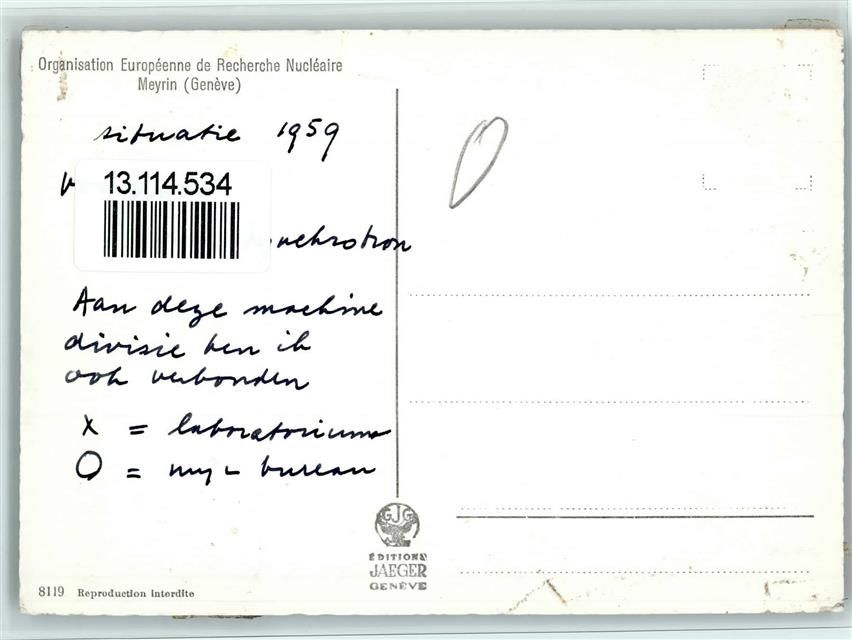 Organisation Européenne de Recherche Nucléaire
Meyrin (Genève)
situatie 1959
13.114.534
Aan deze machine
divisie ben ik
ook verbonden
X = laboratoriums
O = mijn bureau
GJG
ÉDITIONS
JAEGER
GENÈVE
8119 Reproduction interdite